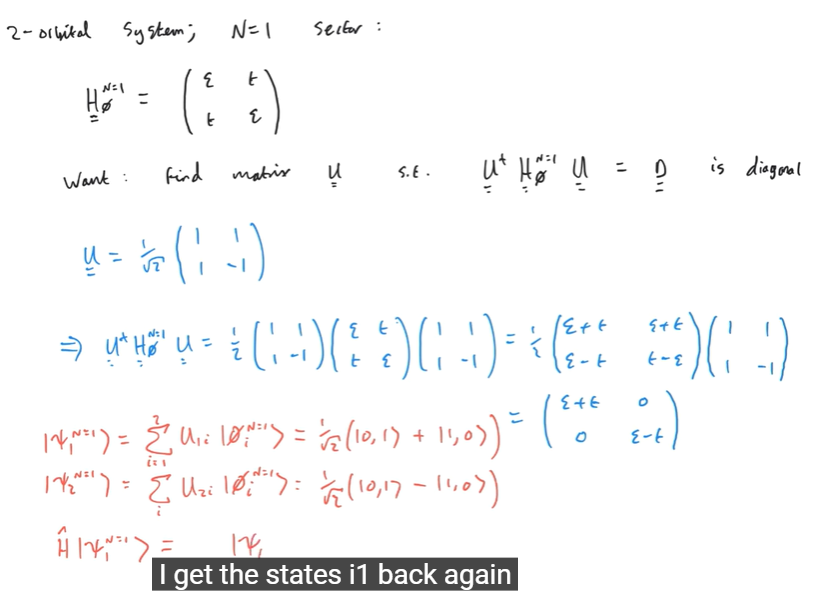 2-orbital system; N=1 sector :
H_ø^{N=1} = ( ε t ; t ε )
Want : find matrix U s.t. U† H_ø^{N=1} U = D is diagonal
U = 1/√2 ( 1 1 ; 1 -1 )
⇒ U† H_ø^{N=1} U = 1/2 ( 1 1 ; 1 -1 ) ( ε t ; t ε ) ( 1 1 ; 1 -1 ) = 1/2 ( ε+t ε+t ; ε-t t-ε ) ( 1 1 ; 1 -1 )
= ( ε+t 0 ; 0 ε-t )
|ψ_1^{N=1}⟩ = Σ_{i=1}^{2} U_{1i} |ø_i^{N=1}⟩ = 1/√2 (|0,1⟩ + |1,0⟩)
|ψ_2^{N=1}⟩ = Σ_i U_{2i} |ø_i^{N=1}⟩ = 1/√2 (|0,1⟩ - |1,0⟩)
Ĥ |ψ_1^{N=1}⟩ = |ψ_1
I get the states i1 back again